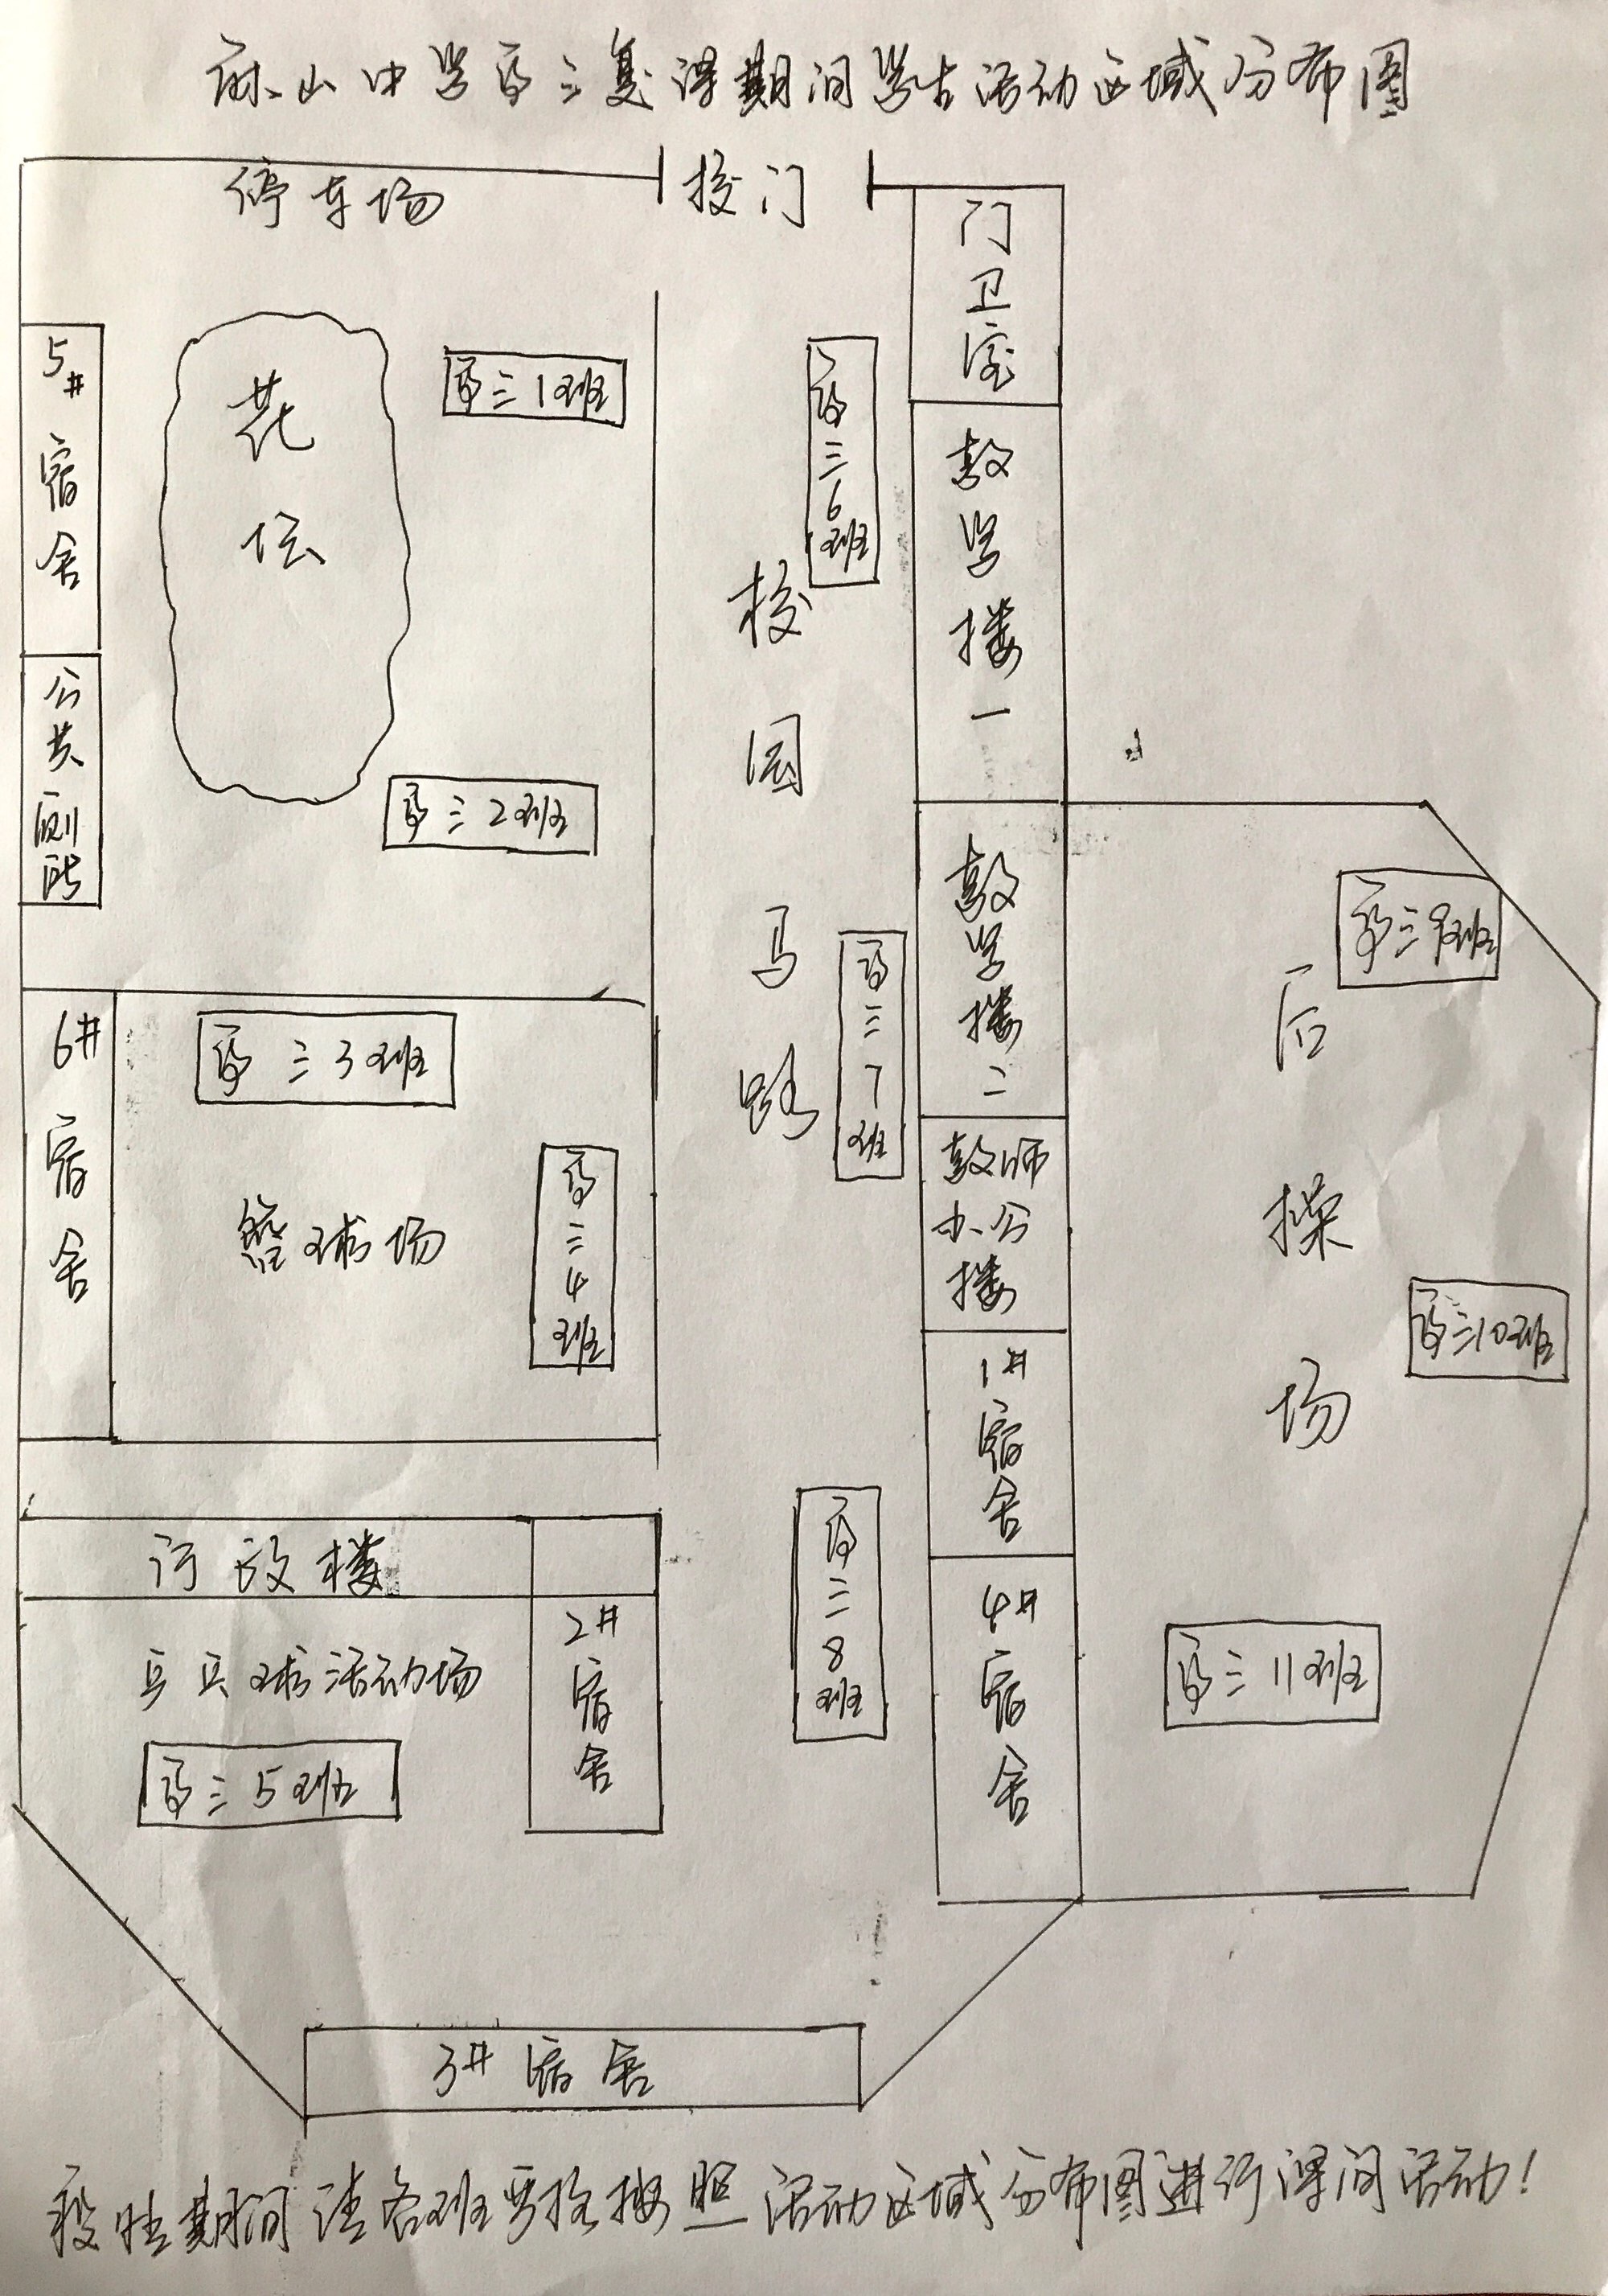 麻山中学高三复课期间学生活动区域分布图
停车场
校门
门卫室
5#宿舍
花坛
高三1班
高三6班
教学楼一
公共厕所
高三2班
校园马路
教学楼二
高三9班
高三7班
后操场
6#宿舍
高三3班
高三4班
篮球场
教师办公楼
高三10班
1#宿舍
行政楼
高三8班
4#宿舍
2#宿舍
乒乓球活动场
高三11班
高三5班
3#宿舍
期间请各班严格按照活动区域分布图进行课间活动!